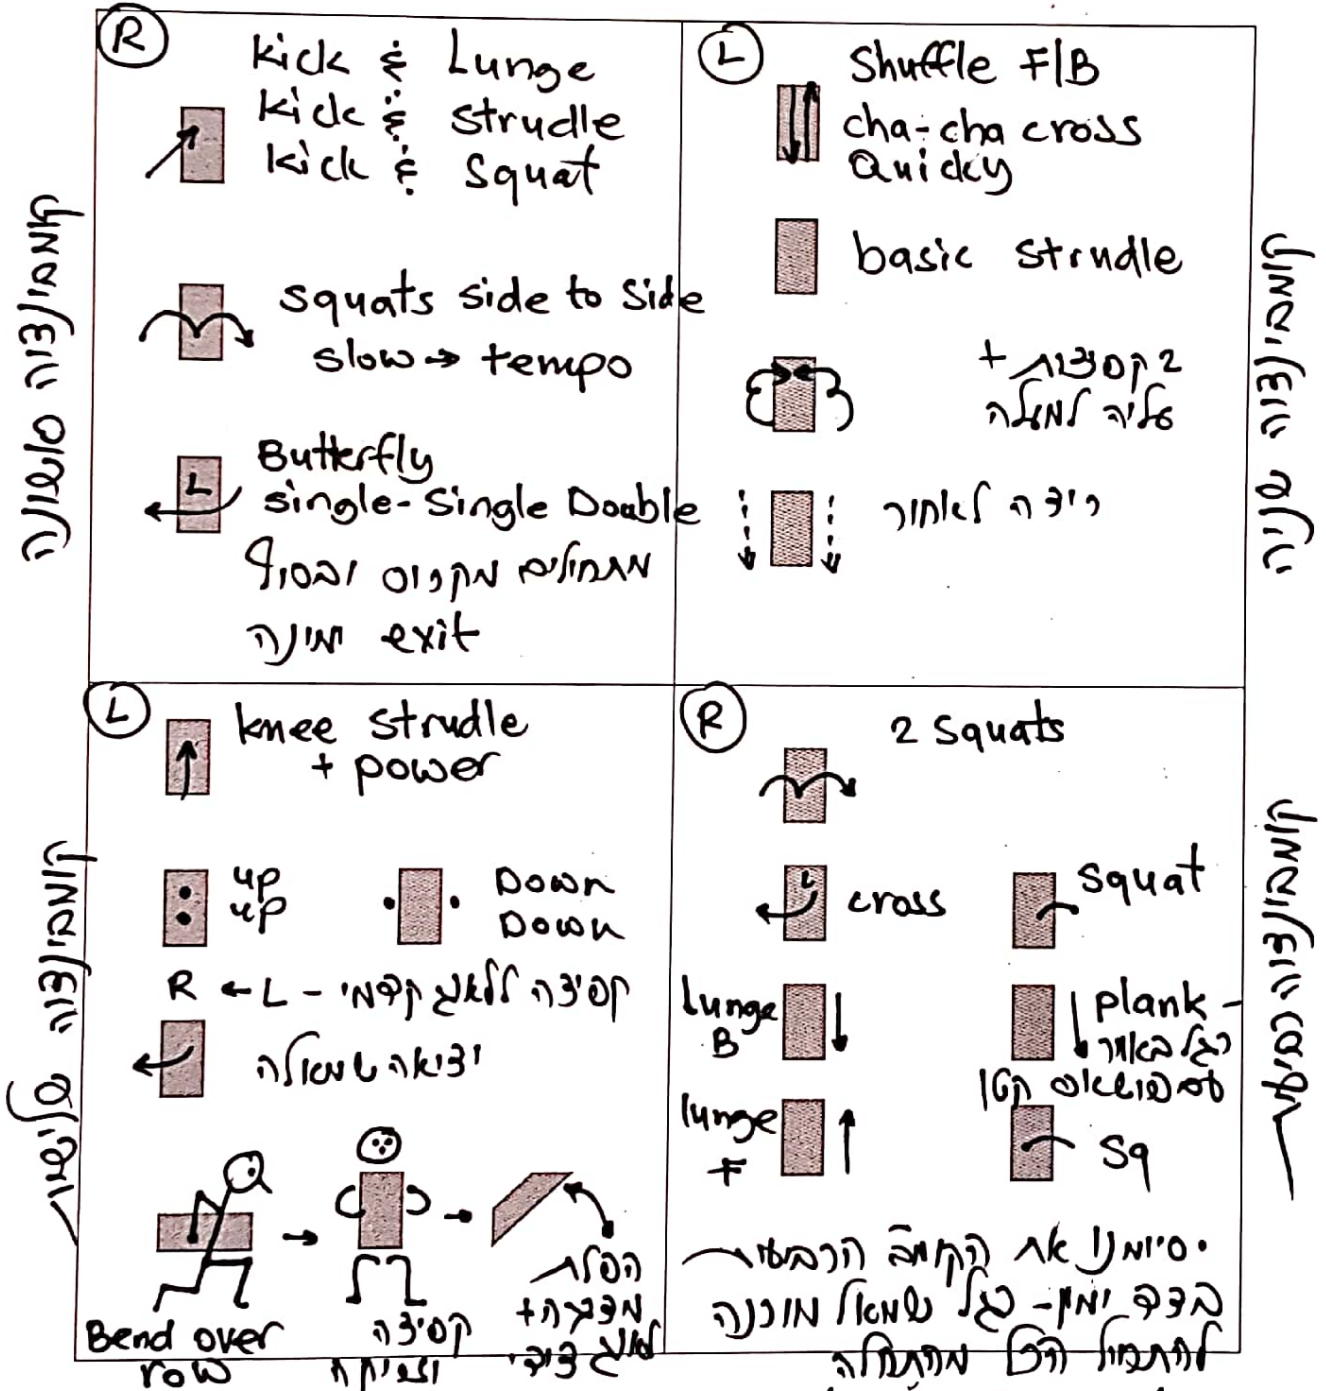 קומבינציה ראשונה
R
kick & Lunge
kick & strudle
kick & squat
squats side to side
slow → tempo
L
Butterfly
single-single Double
מתחילים מקרוס ובסוף
exit ימינה
קומבינציה שניה
L
Shuffle F/B
cha-cha cross
Quicky
basic strudle
2 קפיצות +
עליה למעלה
ריצה לאחור
קומבינציה שלישית
L
knee strudle
+ power
up
up
Down
Down
קפיצה ללאנג קדמי - L → R
יציאה שמאלה
Bend over
row
קפיצה
וזריקה
הפלת
מדרגה+
לאנג צידי
קומבינציה רביעית
R
2 squats
L
cross
squat
lunge
B
plank -
רגל באוויר
lunge
F
sq
• סיימנו את הקומב הרביעית
בצד ימין - רגל שמאל מוכנה
להתחיל הכל מהתחלה